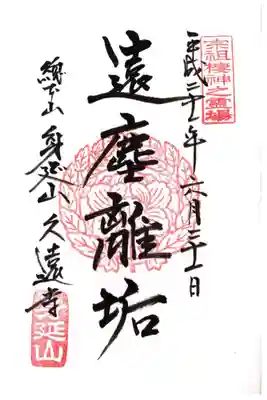 宗祖棲神之霊場
平成二十年六月二十一日
遠塵離垢
總本山 身延山 久遠寺
身延山